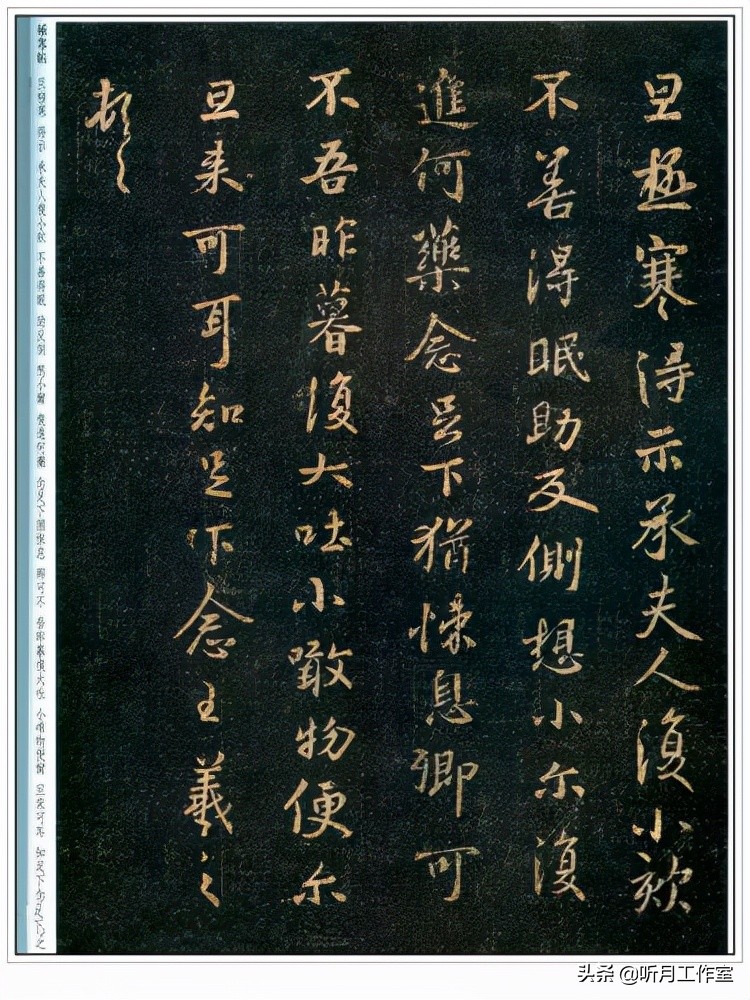 旦極寒得示承夫人復小欬
不善得眠助反側想小尔復
進何藥念足下猶悚息卿可
不吾昨暮復大吐小噉物便尔
旦来可耳知足下念王羲之
頓首
极寒帖
头条 @听月工作室